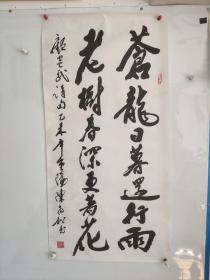 蒼龍日暮還行雨
老樹春深更著花
顧炎武詩句乙未年